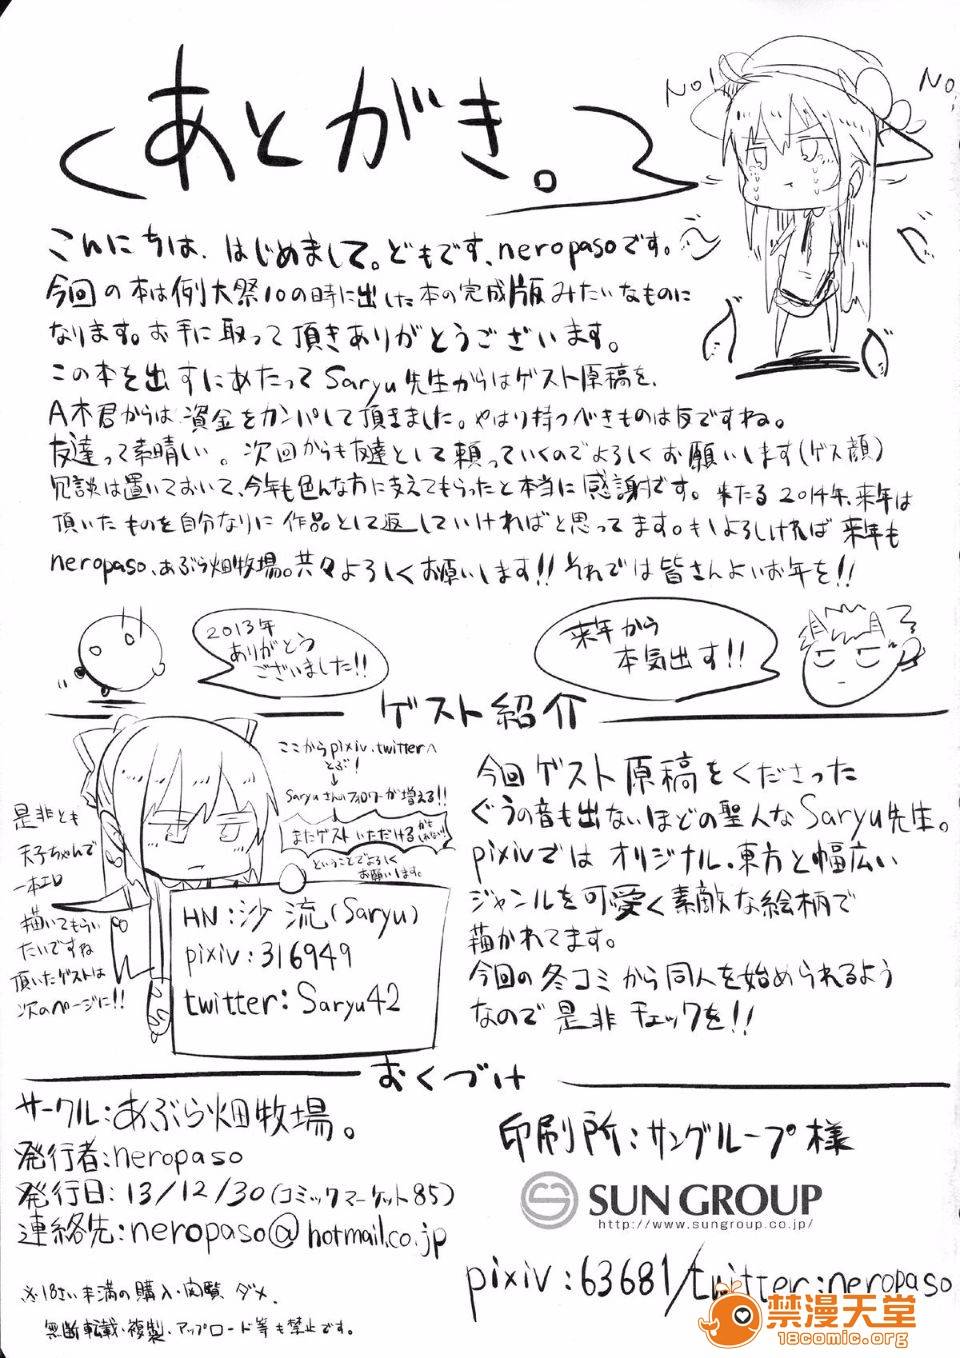 あとがき。
No!
No.
こんにちは、はじめまして。どもです、neropasoです。
今回の本は例大祭10の時に出した本の完成版みたいなものに
なります。お手に取って頂きありがとうございます。
この本を出すにあたってSaryu先生からはゲスト原稿を、
A木君からは資金をカンパして頂きました。やはり持つべきものは友ですね。
友達って素晴しい。次回からも友達として頼っていくのでよろしくお願いします(ゲス顔)
冗談は置いておいて、今年も色んな方に支えてもらったと本当に感謝です。来たる2014年、来年は
頂いたものを自分なりに作品として返していければと思ってます。もしよろしければ来年も
neropaso、あぶら畑牧場。共々よろしくお願いします!!それでは皆さんよいお年を!!
2013年
ありがとう
ございました!!
来年から
本気出す!!
ゲスト紹介
ここからpixiv、twitterへ
とぶ!
↓
Saryuさんのフォロワーが増える!!
↓
またゲストいただけるかもしれない!
ということでよろしく
お願いします。
是非とも
天子ちゃんで
一本エロ
描いてもらい
たいですね
頂いたゲストは
次のページに!!
HN:沙流(Saryu)
pixiv:316949
twitter:Saryu42
今回ゲスト原稿をくださった
ぐうの音も出ないほどの聖人なSaryu先生。
pixivではオリジナル、東方と幅広い
ジャンルを可愛く素敵な絵柄で
描かれてます。
今回の冬コミから同人を始められるよう
なので是非チェックを!!
おくづけ
サークル:あぶら畑牧場。
発行者:neropaso
発行日:13/12/30(コミックマーケット85)
連絡先:neropaso@hotmail.co.jp
※18さい未満の購入・閲覧ダメ、
無断転載・複製・アップロード等も禁止です。
印刷所:サングループ様
SUN GROUP
http://www.sungroup.co.jp/
pixiv:63681/twitter:neropaso
禁漫天堂
18comic.org